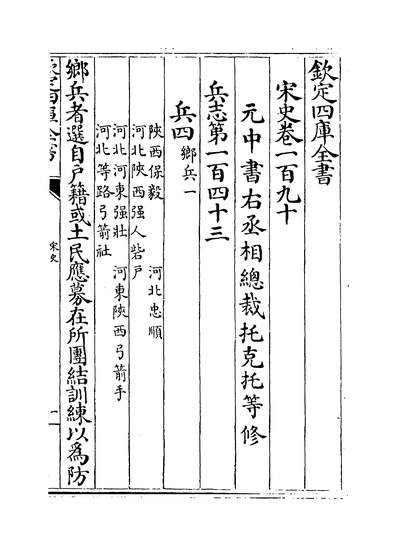 欽定四庫全書
宋史卷一百九十
元中書右丞相總裁托克托等修
兵志第一百四十三
兵四鄉兵一
陝西保毅 河北忠順
河北陝西强人砦戶
河北河東强壯 河東陝西弓箭手
河北等路弓箭社
鄉兵者選自戶籍或土民應募在所團結訓練以為防
欽定四庫全書
宋史
一